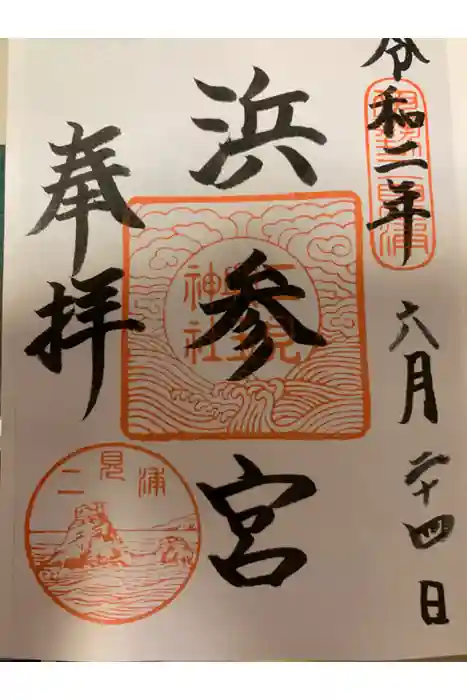 令和二年
六月
二十四日
浜参宮
二見
興玉
神社
奉拝
二見浦